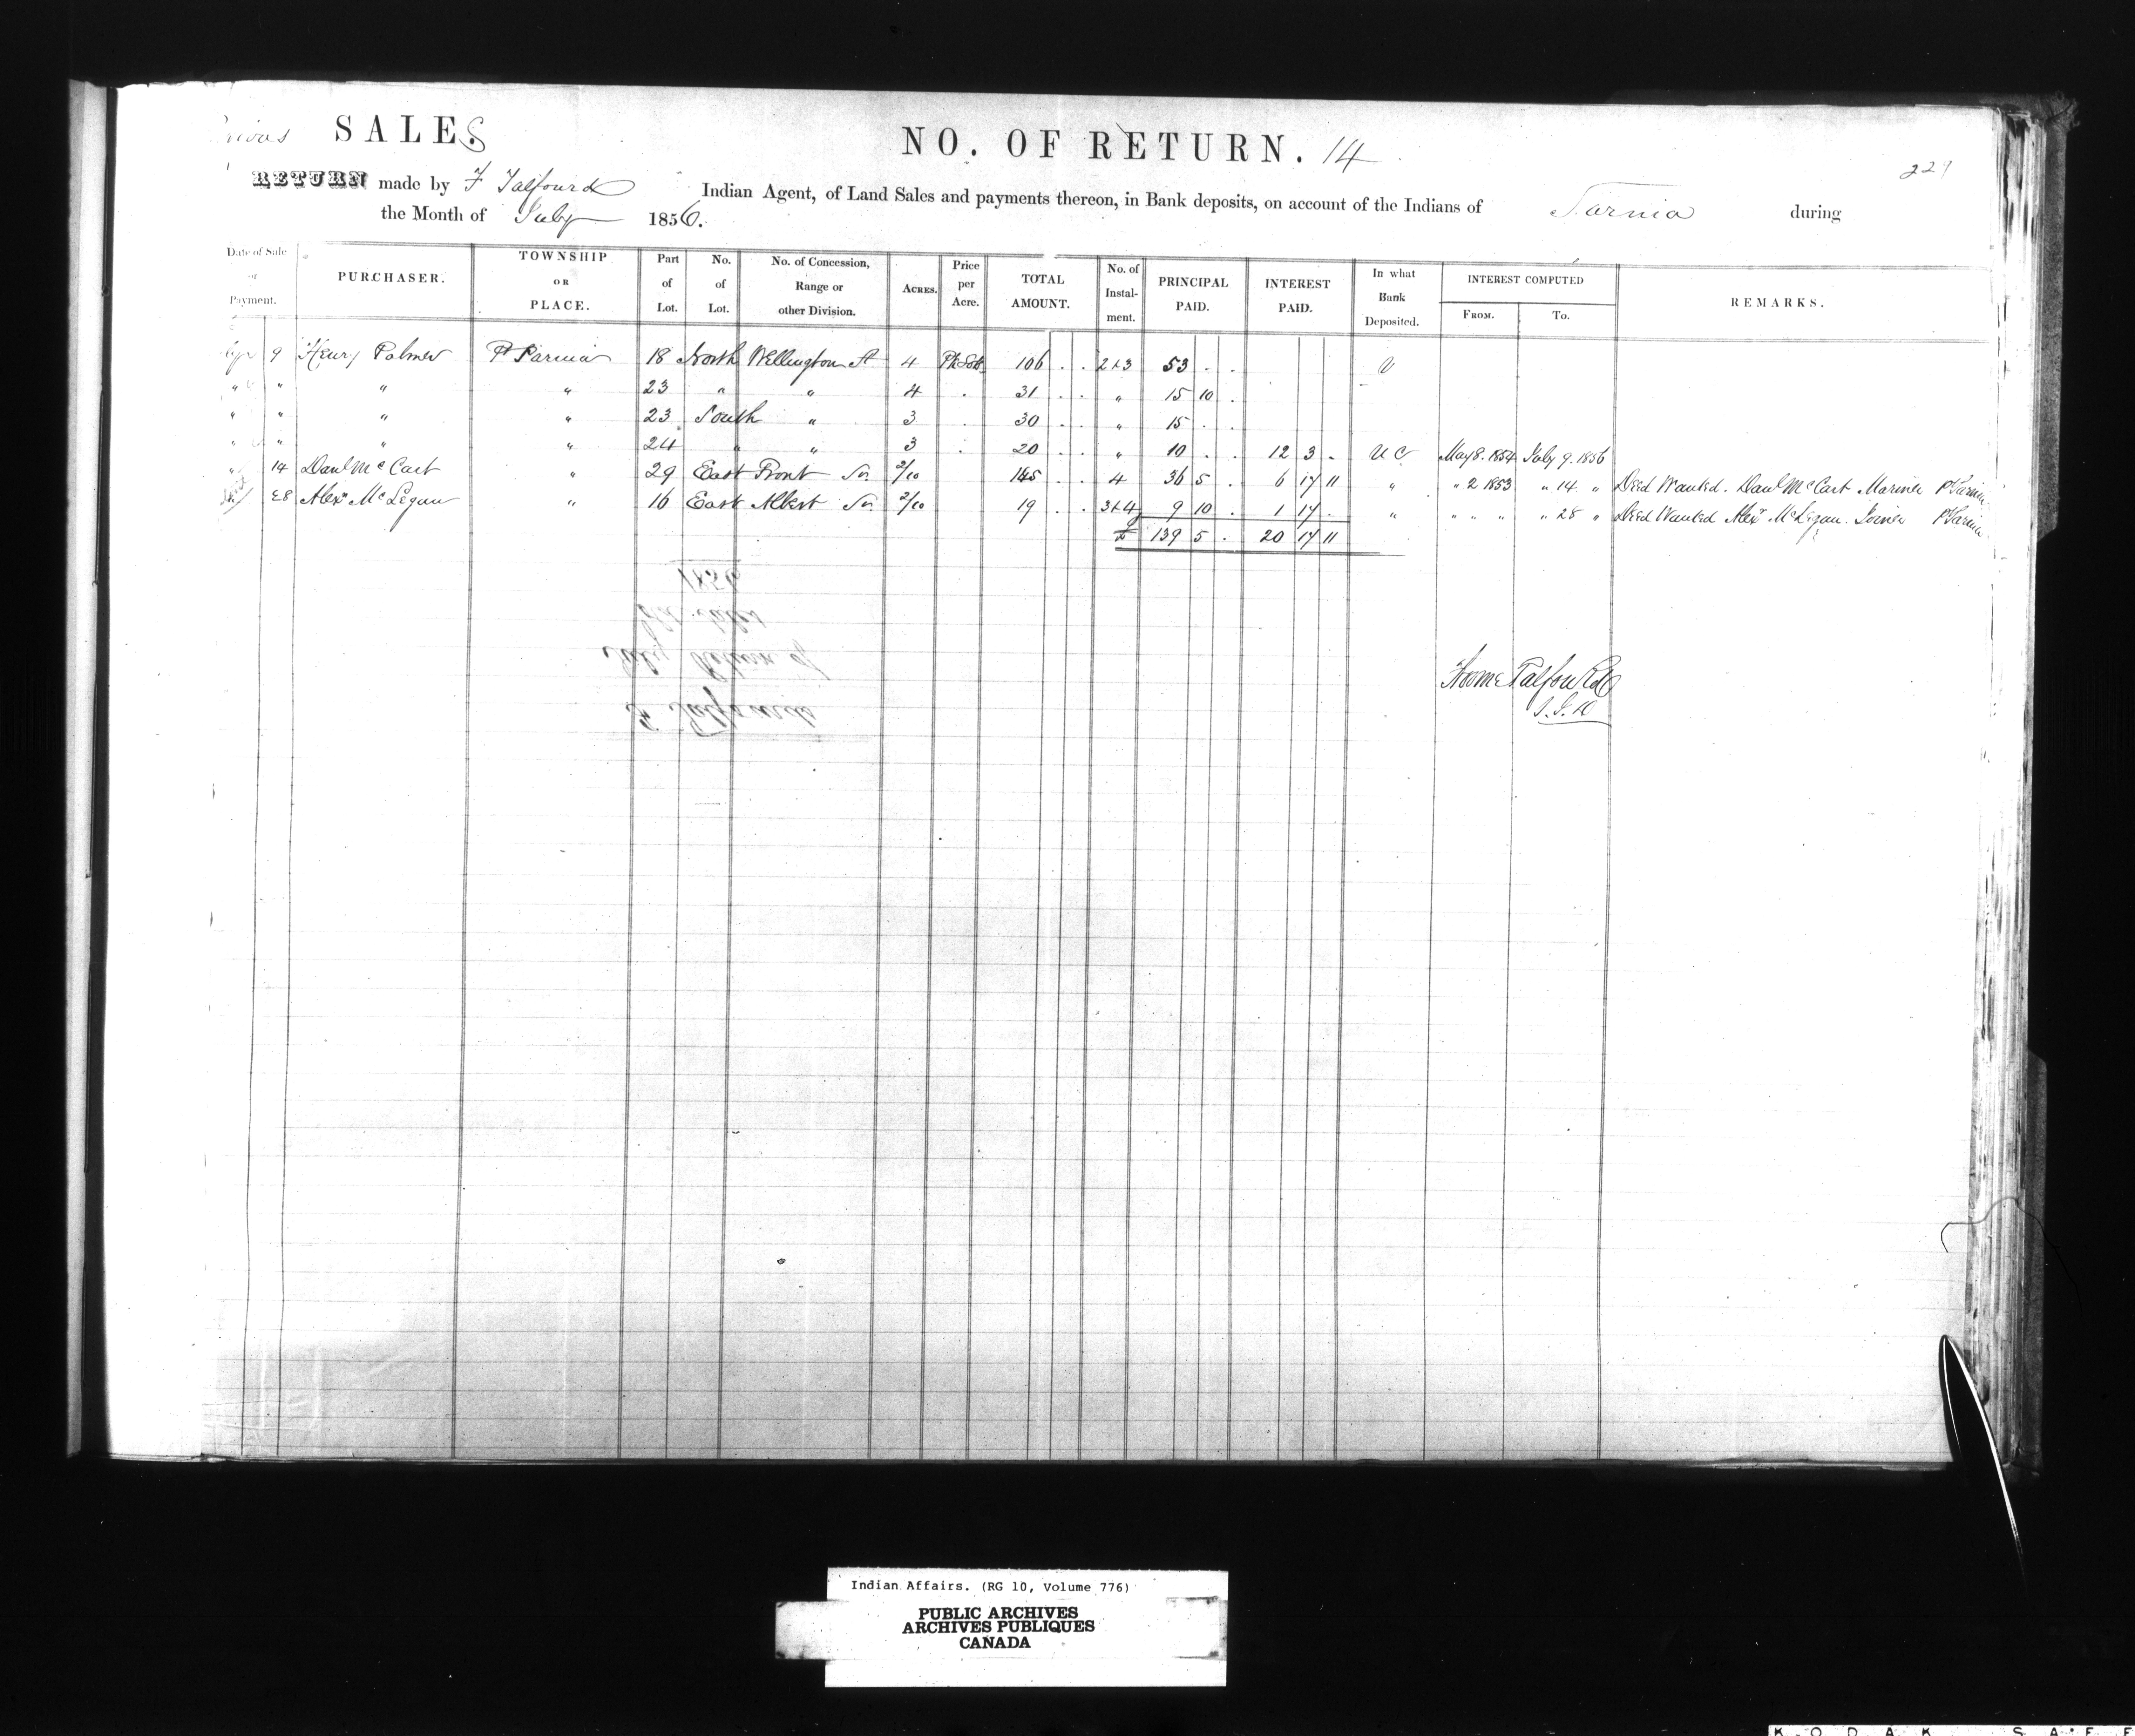 SALES NO. OF RETURN. 14
RETURN made by F Talfourd Indian Agent, of Land Sales and payments thereon, in Bank deposits, on account of the Indians of Sarnia during
the Month of July 1856.
Date of Sale or Payment. PURCHASER. TOWNSHIP OR PLACE. Part of Lot. No. of Lot. No. of Concession, Range or other Division. ACRES. Price per Acre. TOTAL AMOUNT. No. of Instal-ment. PRINCIPAL PAID. INTEREST PAID. In what Bank Deposited. INTEREST COMPUTED FROM. TO. REMARKS.
9 Henry Palmer Pt Sarnia 18 North Wellington St 4 106 . . 2+3 53 . .
" " " " 23 " " 4 . 31 . . " 15 10 .
" " " " 23 South " 3 . 30 . . " 15 . .
" " " " 24 " " 3 . 20 . . " 10 . . 12 3 . U C May 8. 1854 July 9. 1856
" 14 Danl McCart " 29 East Front St. 2/10 145 . . 4 36 5 . 6 17 11 " " 2 1853 " 14 " Deed Wanted. Danl McCart Mariner Pt Sarnia
28 Alexr McLegan " 16 East Albert St. 2/10 19 . . 3+4 9 10 . 1 17 . " " " " " 28 " Deed Wanted Alexr McLegan. Joiner Pt Sarnia
£ 139 5 . 20 17 11
1856
July Return of
F Talfourds
Froome Talfourd
Indian Affairs. (RG 10, Volume 776)
PUBLIC ARCHIVES
ARCHIVES PUBLIQUES
CANADA
KODAK SAFE